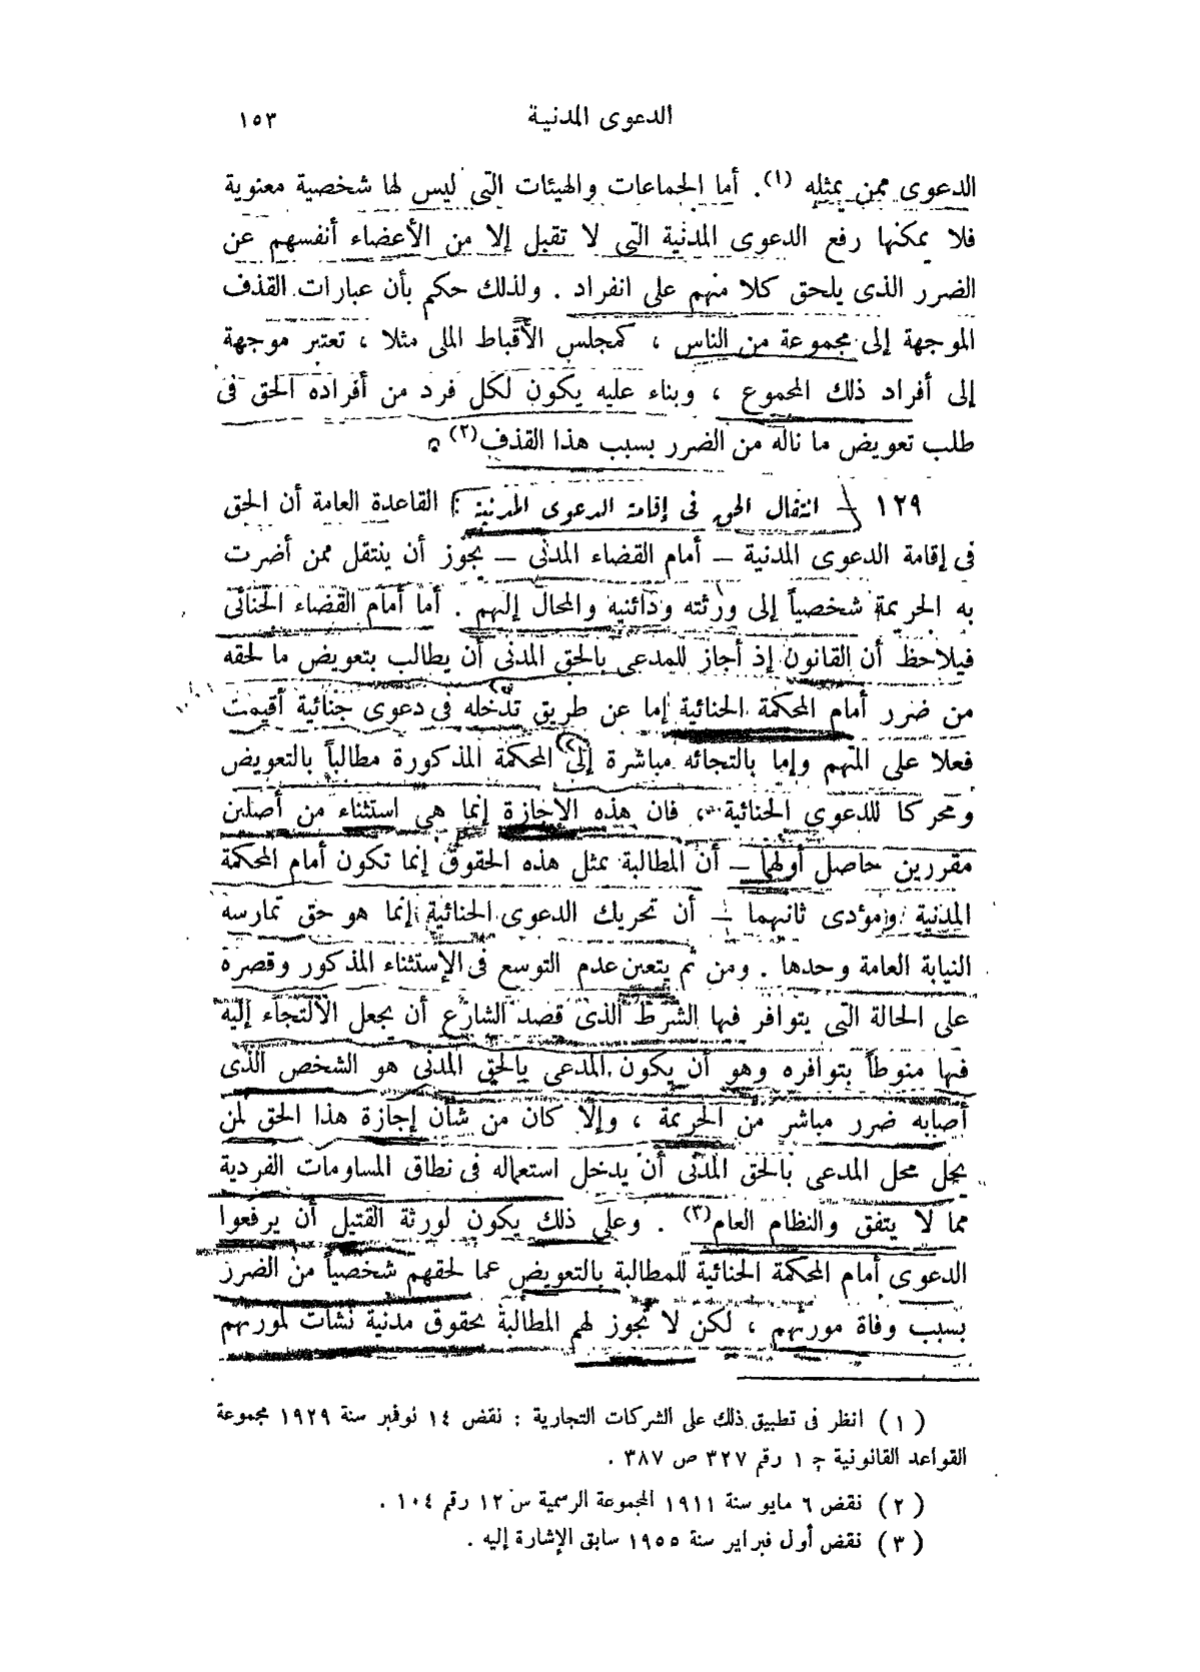 الدعوى المدنية ١٥٣
الدعوى ممن يمثله (١). أما الجماعات والهيئات التى ليس لها شخصية معنوية
فلا يمكنها رفع الدعوى المدنية التى لا تقبل إلا من الأعضاء أنفسهم عن
الضرر الذى يلحق كلا منهم على انفراد . ولذلك حكم بأن عبارات القذف
الموجهة إلى مجموعة من الناس ، كمجلس الأقباط الملى مثلا ، تعتبر موجهة
إلى أفراد ذلك المجموع ، وبناء عليه يكون لكل فرد من أفراده الحق فى
طلب تعويض ما ناله من الضرر بسبب هذا القذف(٢) .
١٢٩ – انتقال الحق فى إقامة الدعوى المدنية : القاعدة العامة أن الحق
فى إقامة الدعوى المدنية – أمام القضاء المدنى – يجوز أن ينتقل ممن أضرت
به الجريمة شخصياً إلى ورثته ودائنيه والمحال إليهم . أما أمام القضاء الجنائى
فيلاحظ أن القانون إذ أجاز للمدعى بالحق المدنى أن يطالب بتعويض ما لحقه
من ضرر أمام المحكمة الجنائية إما عن طريق تدخله فى دعوى جنائية أقيمت
فعلا على المتهم وإما بالتجائه مباشرة إلى المحكمة المذكورة مطالباً بالتعويض
ومحركا للدعوى الجنائية ، فان هذه الإجازة إنما هى استثناء من أصلين
مقررين حاصل أولهما – أن المطالبة بمثل هذه الحقوق إنما تكون أمام المحكمة
المدنية ومؤدى ثانيهما – أن تحريك الدعوى الجنائية إنما هو حق تمارسه
النيابة العامة وحدها . ومن ثم يتعين عدم التوسع فى الإستثناء المذكور وقصره
على الحالة التى يتوافر فيها الشرط الذى قصد الشارع أن يجعل الالتجاء إليه
فيها منوطاً بتوافره وهو أن يكون المدعى بالحق المدنى هو الشخص الذى
أصابه ضرر مباشر من الجريمة ، وإلا كان من شأن إجازة هذا الحق لمن
يحل محل المدعى بالحق المدنى أن يدخل استعماله فى نطاق المساومات الفردية
مما لا يتفق والنظام العام(٣) . وعلى ذلك يكون لورثة القتيل أن يرفعوا
الدعوى أمام المحكمة الجنائية للمطالبة بالتعويض عما لحقهم شخصياً من الضرر
بسبب وفاة مورثهم ، لكن لا تجوز لهم المطالبة بحقوق مدنية نشأت لمورثهم
(١) انظر فى تطبيق ذلك على الشركات التجارية : نقض ١٤ نوفمبر سنة ١٩٢٩ مجموعة
القواعد القانونية ج ١ رقم ٣٢٧ ص ٣٨٧ .
(٢) نقض ٦ مايو سنة ١٩١١ المجموعة الرسمية س ١٢ رقم ١٠٤ .
(٣) نقض أول فبراير سنة ١٩٥٥ سابق الإشارة إليه .